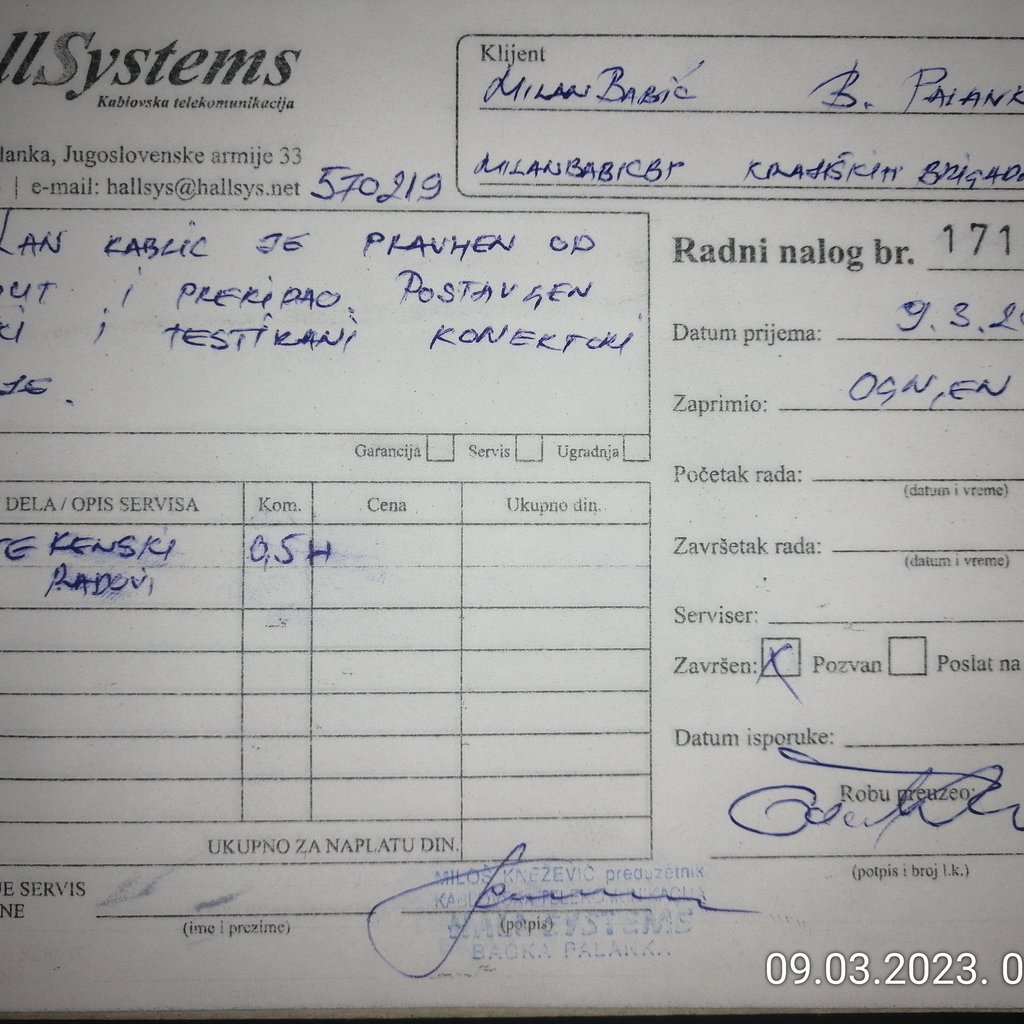 llSystems
Kablovska telekomunikacija
lanka, Jugoslovenske armije 33
| e-mail: hallsys@hallsys.net 570219
Klijent
MILAN BABIĆ B. PALANK
MILANBABICBP KRAJIŠKIH BRIGADA
LAN KABLIC JE PRAVLJEN OD
OUT I PREKIDAO. POSTAVLJEN
KI I TESTIRANI KONEKTORI
JE.
Garancija Servis Ugradnja
DELA / OPIS SERVISA Kom. Cena Ukupno din.
TERENSKI 0,5H
RADOVI
UKUPNO ZA NAPLATU DIN.
JE SERVIS
NE
(ime i prezime) (potpis)
MILOŠ KNEŽEVIĆ preduzetnik
KABLOVSKA TELEKOMUNIKACIJA
HALL SYSTEMS
BAČKA PALANKA
Radni nalog br. 171
Datum prijema: 9.3.20
Zaprimio: OGNJEN
Početak rada:
(datum i vreme)
Završetak rada:
(datum i vreme)
Serviser:
Završen: X Pozvan Poslat na
Datum isporuke:
Robu preuzeo:
(potpis i broj l.k.)
09.03.2023. 0